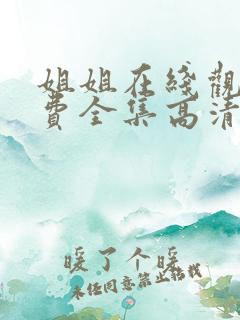 姐姐在綫觀
費全集高清
暖了个暖
未经同意禁止转载